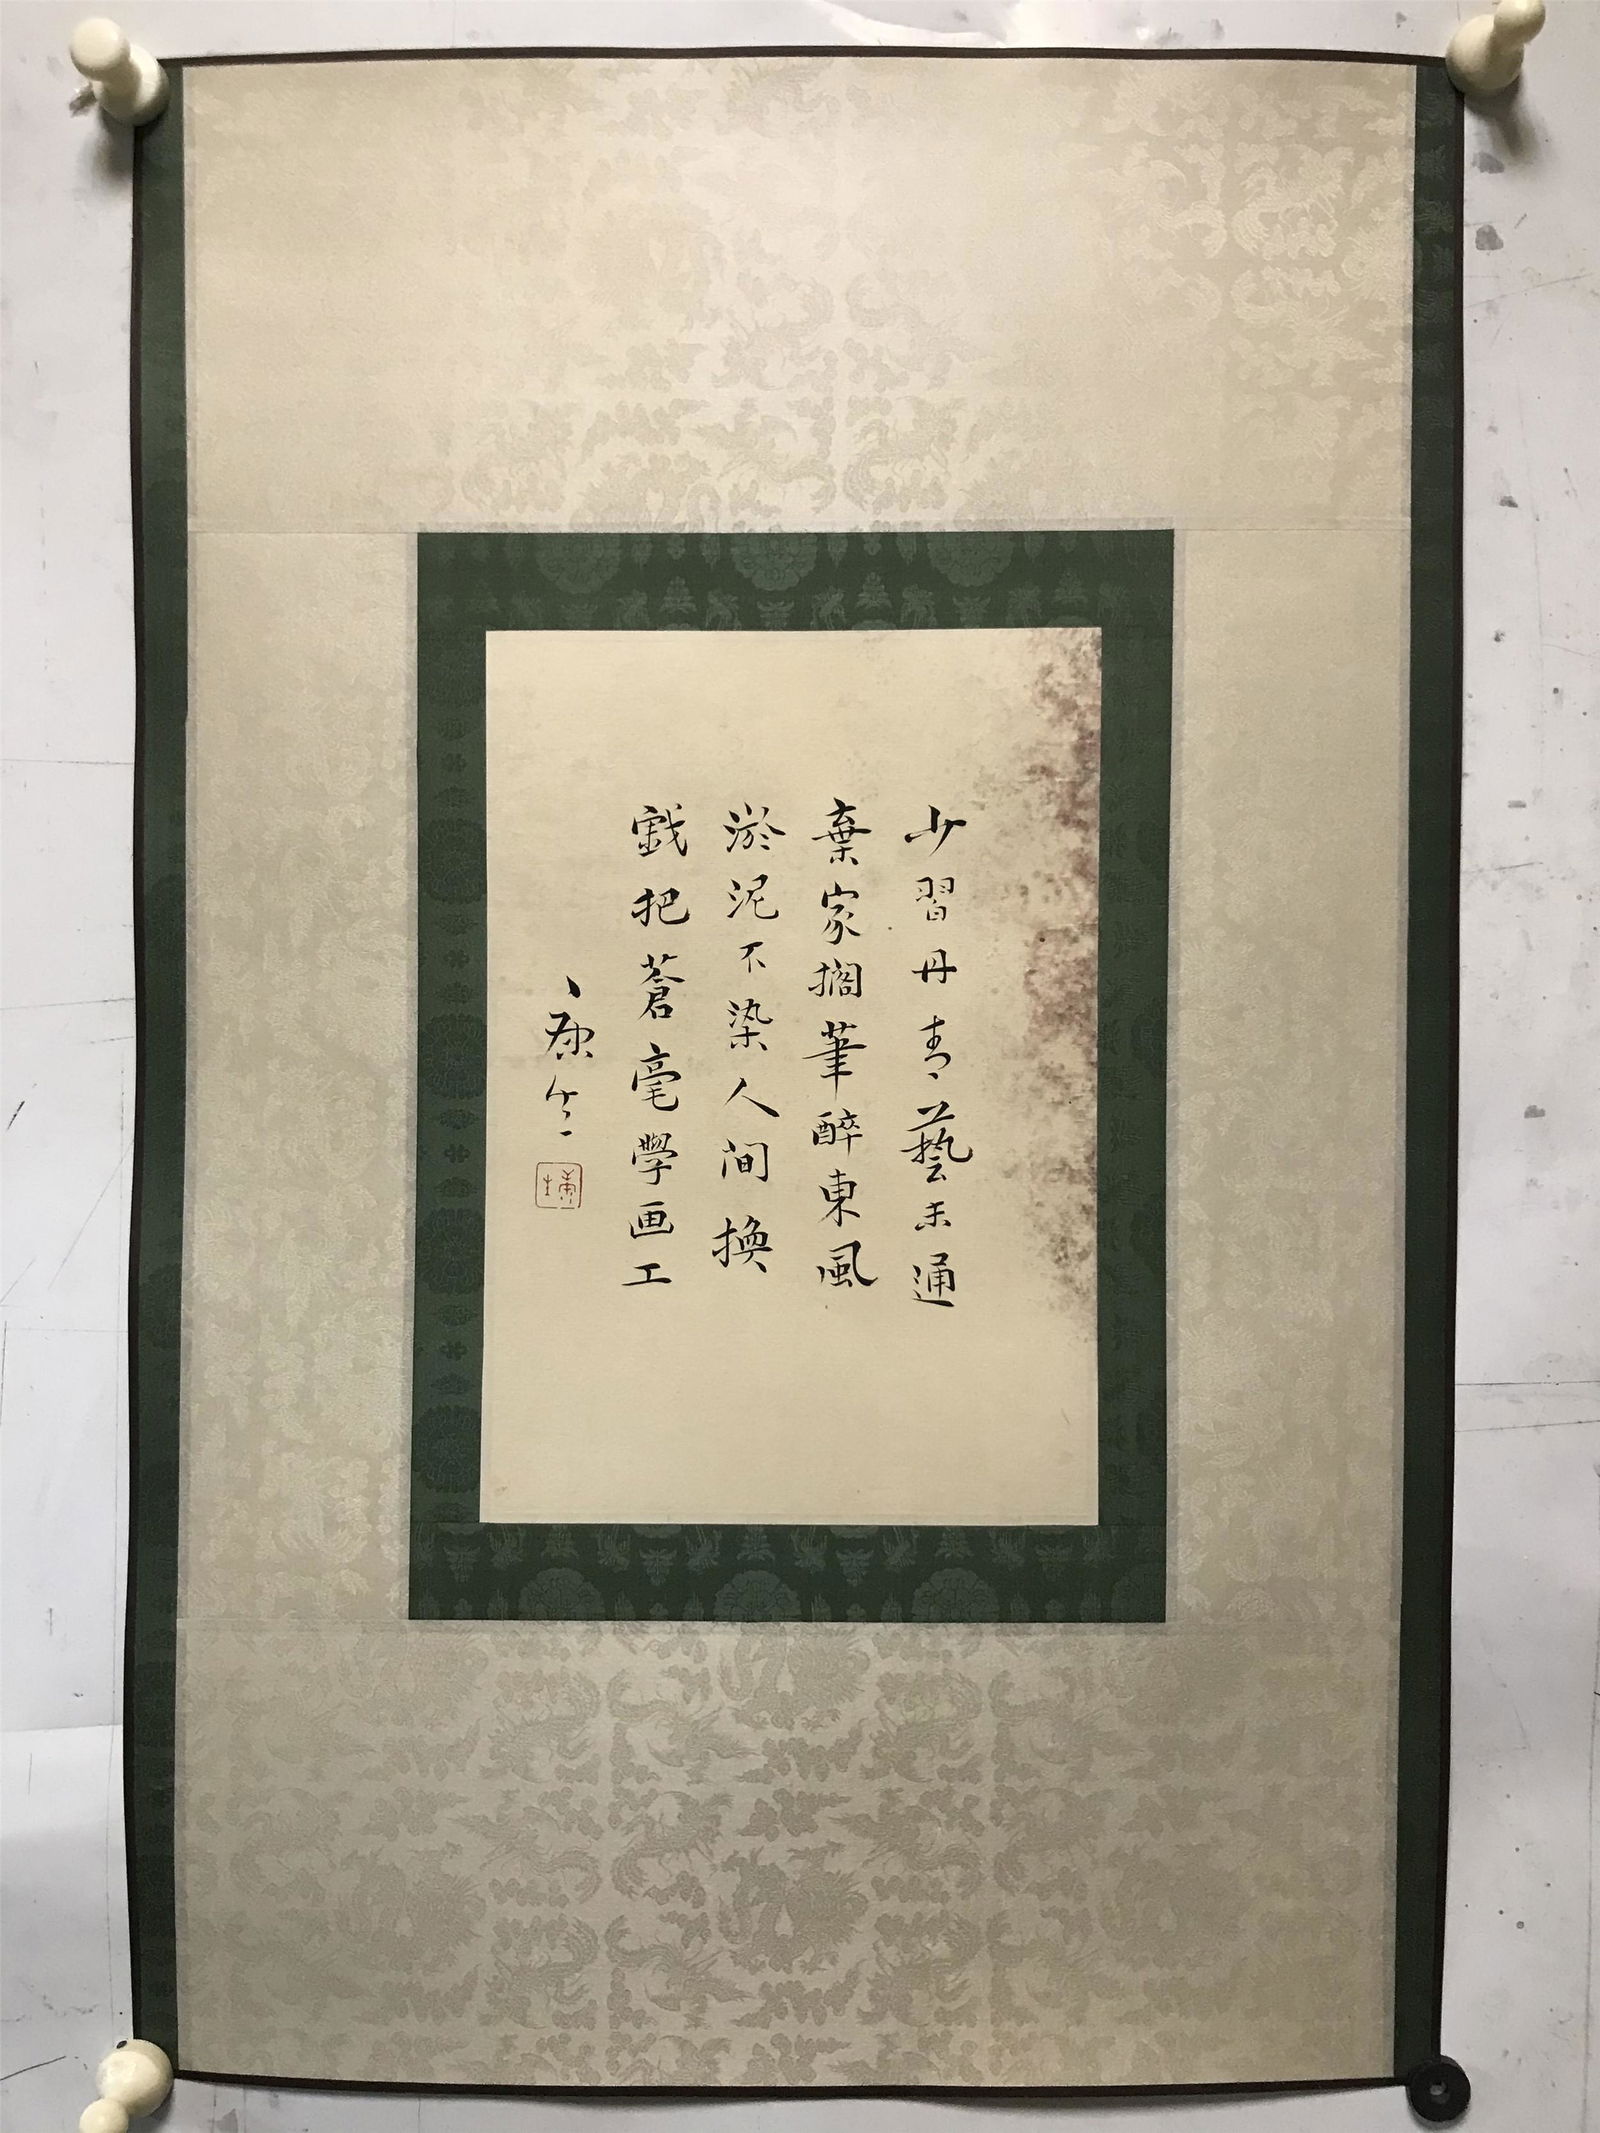 少習丹青藝未通
棄家擱筆醉東風
淤泥不染人间換
戲把蒼毫學画工
康生